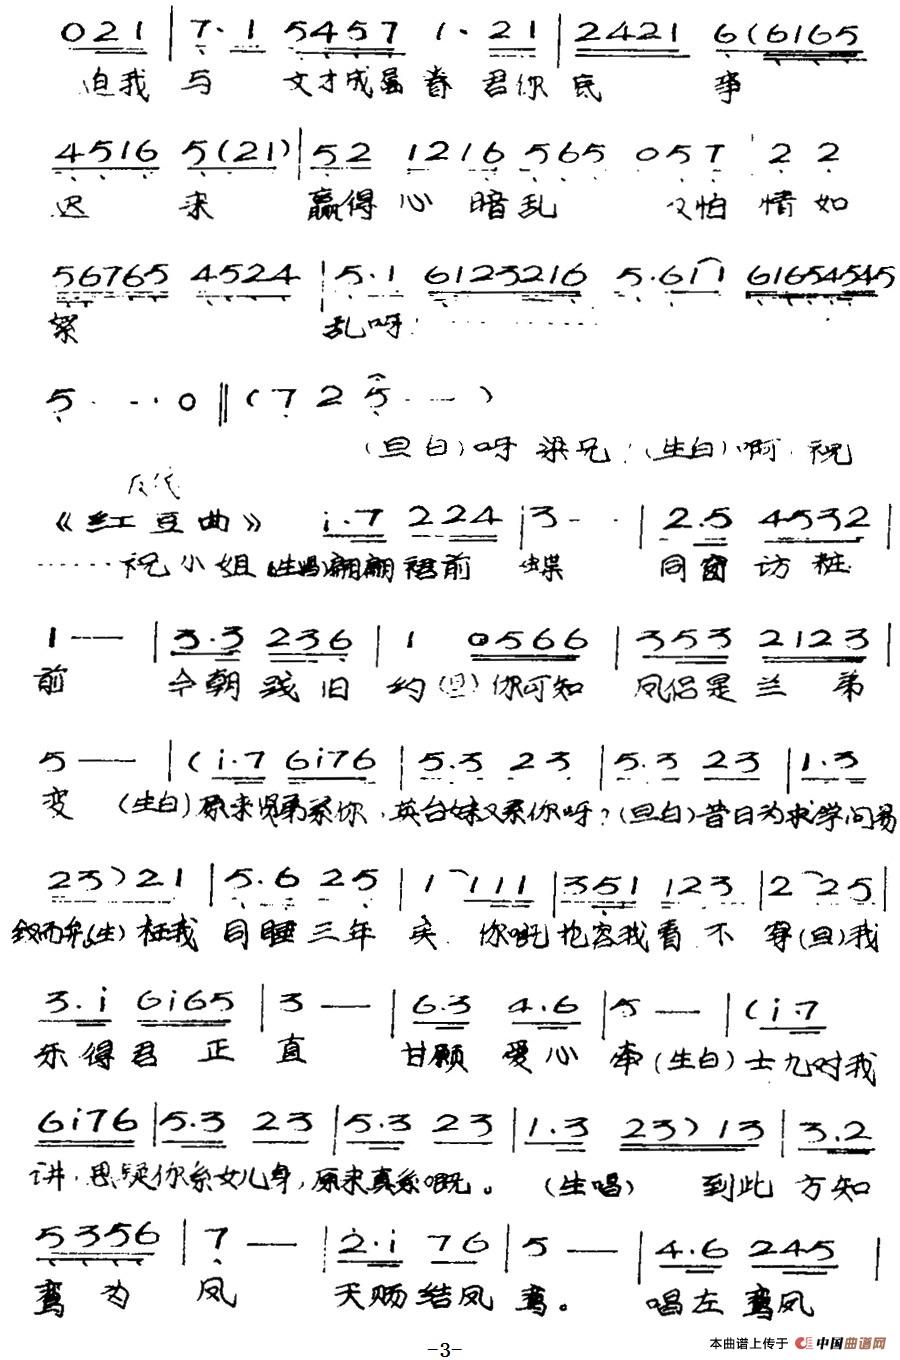 0 2 1 | 7· 1 5 4 5 7 1· 2 1 | 2 4 2 1 6 ( 6 1 6 5
迫我 与 文才成眷 君你 底 事
4 5 1 6 5 ( 2 1 ) | 5 2 1 2 1 6 5 6 5 0 5 7 2 2
迟 来 赢得 心 暗乱 又怕 情 如
5 6 7 6 5 4 5 2 4 | 5· 1 6 1 2 3 2 1 6 5· 6 1 1 6 1 6 5 4 5 4 5
絮 乱呀
5 · · · 0 ‖ ( 7 2 5 · — )
(旦白) 呀 梁兄! (生白) 啊 祝
反线
《红豆曲》 i· 7 2 2 4 | 3 · · | 2· 5 4 5 3 2 |
······祝小姐 (生唱) 翩翩裙前 蝶 同窗 访 粧
1 — — | 3· 3 2 3 6 | 1 0 5 6 6 | 3 5 3 2 1 2 3 |
前 今朝 践 旧 约 (旦) 你可知 凤侣是 兰 弟
5 — — | ( i· 7 6 i 7 6 | 5· 3 2 3 | 5· 3 2 3 | 1· 3
变 (生白) 原来贤弟系你,英台妹又系你呀?(旦白) 昔日为求学问易
2 3 ) 2 1 | 5· 6 2 5 | 1 1 1 1 | 3 5 1 1 2 3 | 2 2 5 |
钗而弁 (生) 枉我 同睡 三年 矣 你嘅 容我看 不 (旦) 我
3· i 6 i 6 5 | 3 — | 6· 3 4· 6 | 5 — | ( i· 7
乐得君 正 直 甘愿 爱心 牵 (生白) 士九时我
6 i 7 6 | 5· 3 2 3 | 5· 3 2 3 | 1· 3 2 3 ) 1 3 | 3· 2
讲,思疑你系女儿身,原来真系嘅。 (生唱) 到此 方知
5 3 5 6 | 7 — | 2· i 7 6 | 5 — | 4· 6 2 4 5 |
鸾 为 凤 天赐结凤 鸾。 唱左 鸾凤
-3-
本曲谱上传于 中国曲谱网